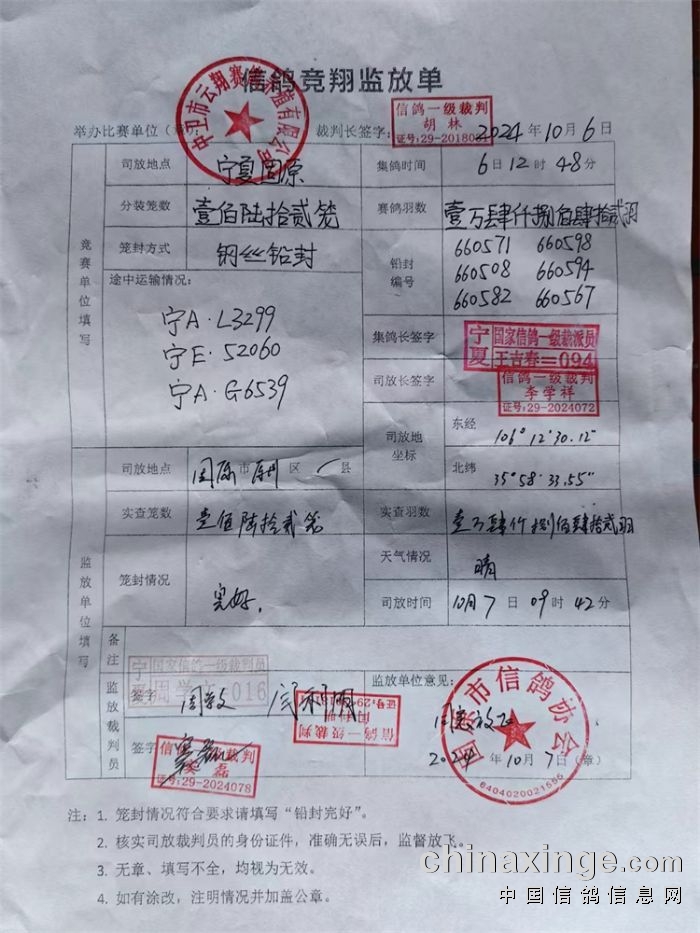 信鸽竞翔监放单
中卫市云翔赛鸽
有限公司
举办比赛单位(章): 裁判长签字: 2024年10月6日
信鸽一级裁判
胡林
竞赛单位填写
司放地点 宁夏固原 集鸽时间 6日12时48分
分装笼数 壹佰陆拾贰笼 赛鸽羽数 壹万肆仟捌佰肆拾贰羽
笼封方式 钢丝铅封 铅封编号
660571 660598
660508 660594
660582 660567
途中运输情况:
宁A·L3299
宁E·52060
宁A·G6539
集鸽长签字
宁夏 国家信鸽一级裁派员
王吉春=094
司放长签字
信鸽一级裁判
李学祥
证号:29-2024072
司放地坐标
东经 106°12′30.12″
北纬 35°58′33.55″
监放单位填写
司放地点 固原市原州区 县
实查笼数 壹佰陆拾贰笼 实查羽数 壹万肆仟捌佰肆拾贰羽
笼封情况 完好. 天气情况 晴
司放时间 10月7日09时42分
备注
监放裁判员
宁夏 国家信鸽一级裁判员
016
签字
信鸽一级裁判
签字
级裁判
磊
证号:29-2024078
监放单位意见:
同意放飞
2024年10月7日(章)
固原市信鸽协会
6404020021555
注: 1. 笼封情况符合要求请填写“铅封完好”。
2. 核实司放裁判员的身份证件,准确无误后,监督放飞。
3. 无章、填写不全,均视为无效。
4. 如有涂改,注明情况并加盖公章。
chinaxinge.com
中国信鸽信息网